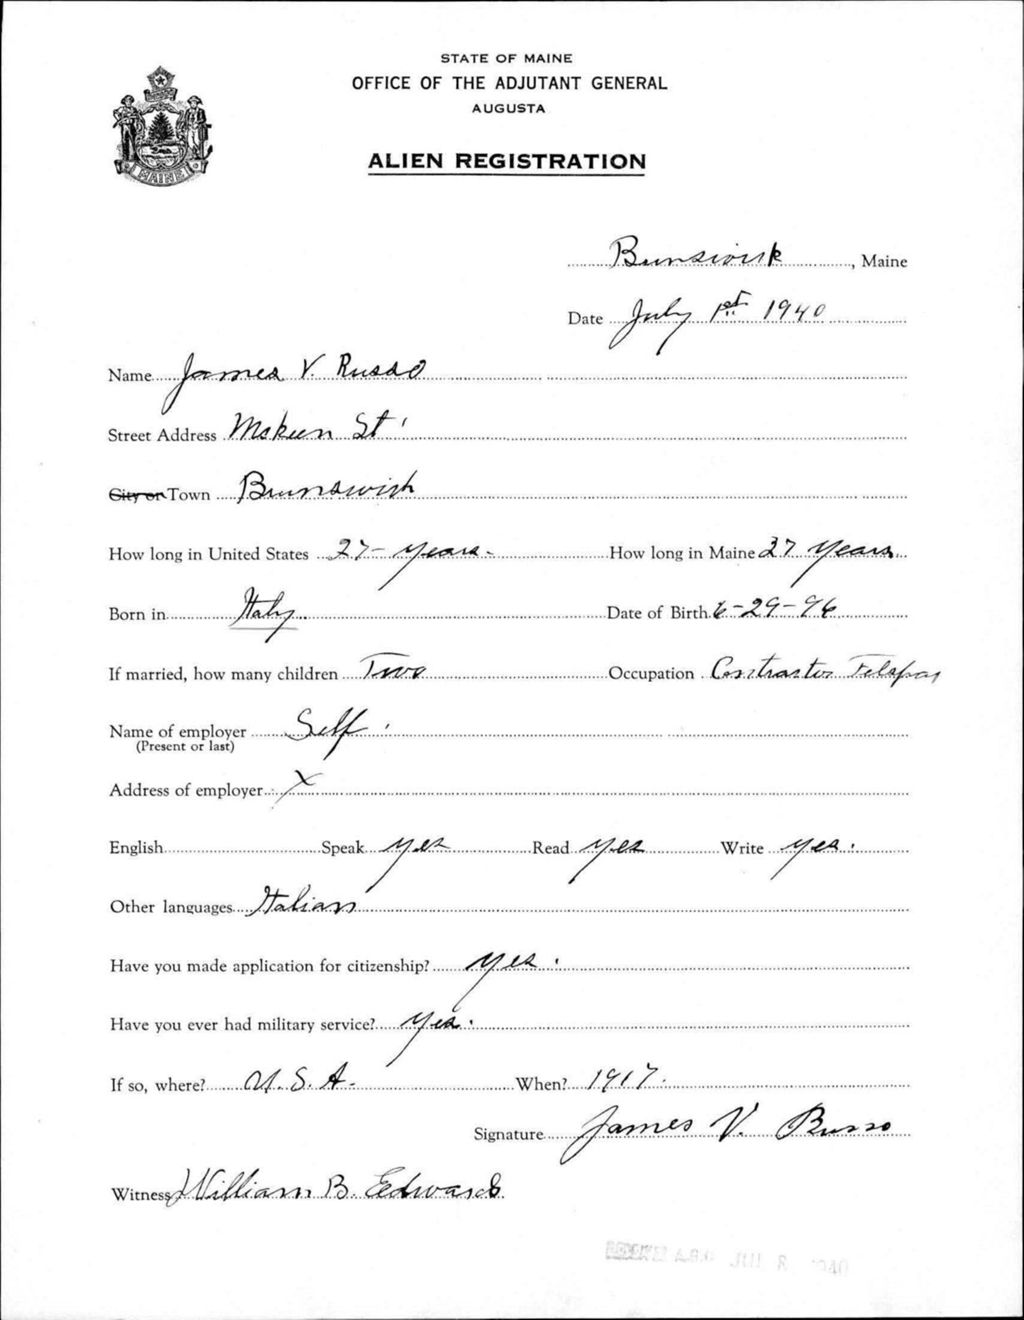 STATE OF MAINE
OFFICE OF THE ADJUTANT GENERAL
AUGUSTA
ALIEN REGISTRATION
MAINE
Brunswick, Maine
Date July 1st 1940
Name James V. Russo
Street Address McKeen St
City or Town Brunswick
How long in United States 27 years. How long in Maine 27 years
Born in Italy. Date of Birth 6-29-96
If married, how many children Two Occupation Contractor
Name of employer Self
(Present or last)
Address of employer X
English Speak yes Read yes Write yes.
Other languages Italian
Have you made application for citizenship? yes.
Have you ever had military service? yes.
If so, where? U.S.A. When? 1917.
Signature James V. Russo
Witness William B. Edwards
RECEIVED A.G.O. JUL 2 1940